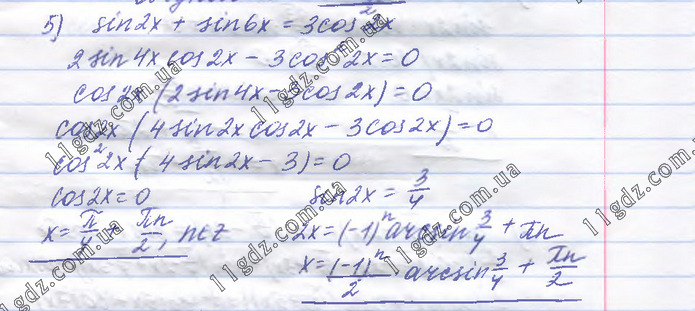 5) sin2x + sin6x = 3cos²2x
2sin4x cos2x − 3cos²2x = 0
cos2x (2sin4x − 3cos2x) = 0
cos2x (4sin2x cos2x − 3cos2x) = 0
cos²2x (4sin2x − 3) = 0
cos2x = 0 sin2x = 3/4
x = π/4 + πn/2, n∈Z 2x = (−1)ⁿ arcsin 3/4 + πn
x = (−1)ⁿ/2 arcsin 3/4 + πn/2
11gdz.com.ua
11gdz.com.ua
11gdz.com.ua
11gdz.com.ua
11gdz.com.ua